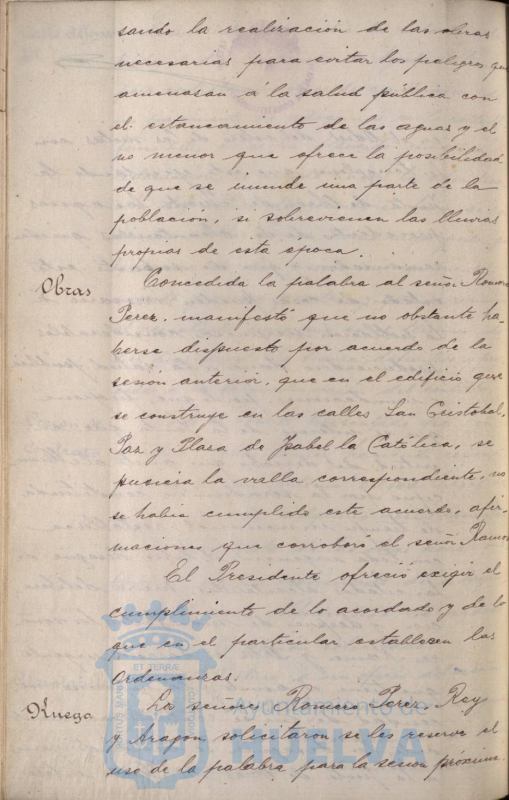 sando la realización de las obras
necesarias para evitar los peligros que
amenasan á la salud pública con
el estancamiento de las aguas y el
no menor que ofrece la posibilidad
de que se inunde una parte de la
población, si sobrevienen las lluvias
propias de esta época.
Obras
Concedida la palabra al señor Romero
Perez, manifestó que no obstante ha-
berse dispuesto por acuerdo de la
sesión anterior, que en el edificio que
se construye en las calles San Cristobal,
Paz y Plaza de Isabel la Católica, se
pusiera la valla correspondiente, no
se habia cumplido este acuerdo, afir-
maciones que corroboró el señor Ramos
El Presidente ofreció exigir el
cumplimiento de lo acordado y de lo
que en el particular establecen las
Ordenanzas.
Ruego
Los señores Romero Perez, Rey
y Aragon solicitaron se les reserve el
uso de la palabra para la sesión próxima.
ET TERRÆ
PORTUS MARIS
CUSTODIA
Ayuntamiento de
HUELVA